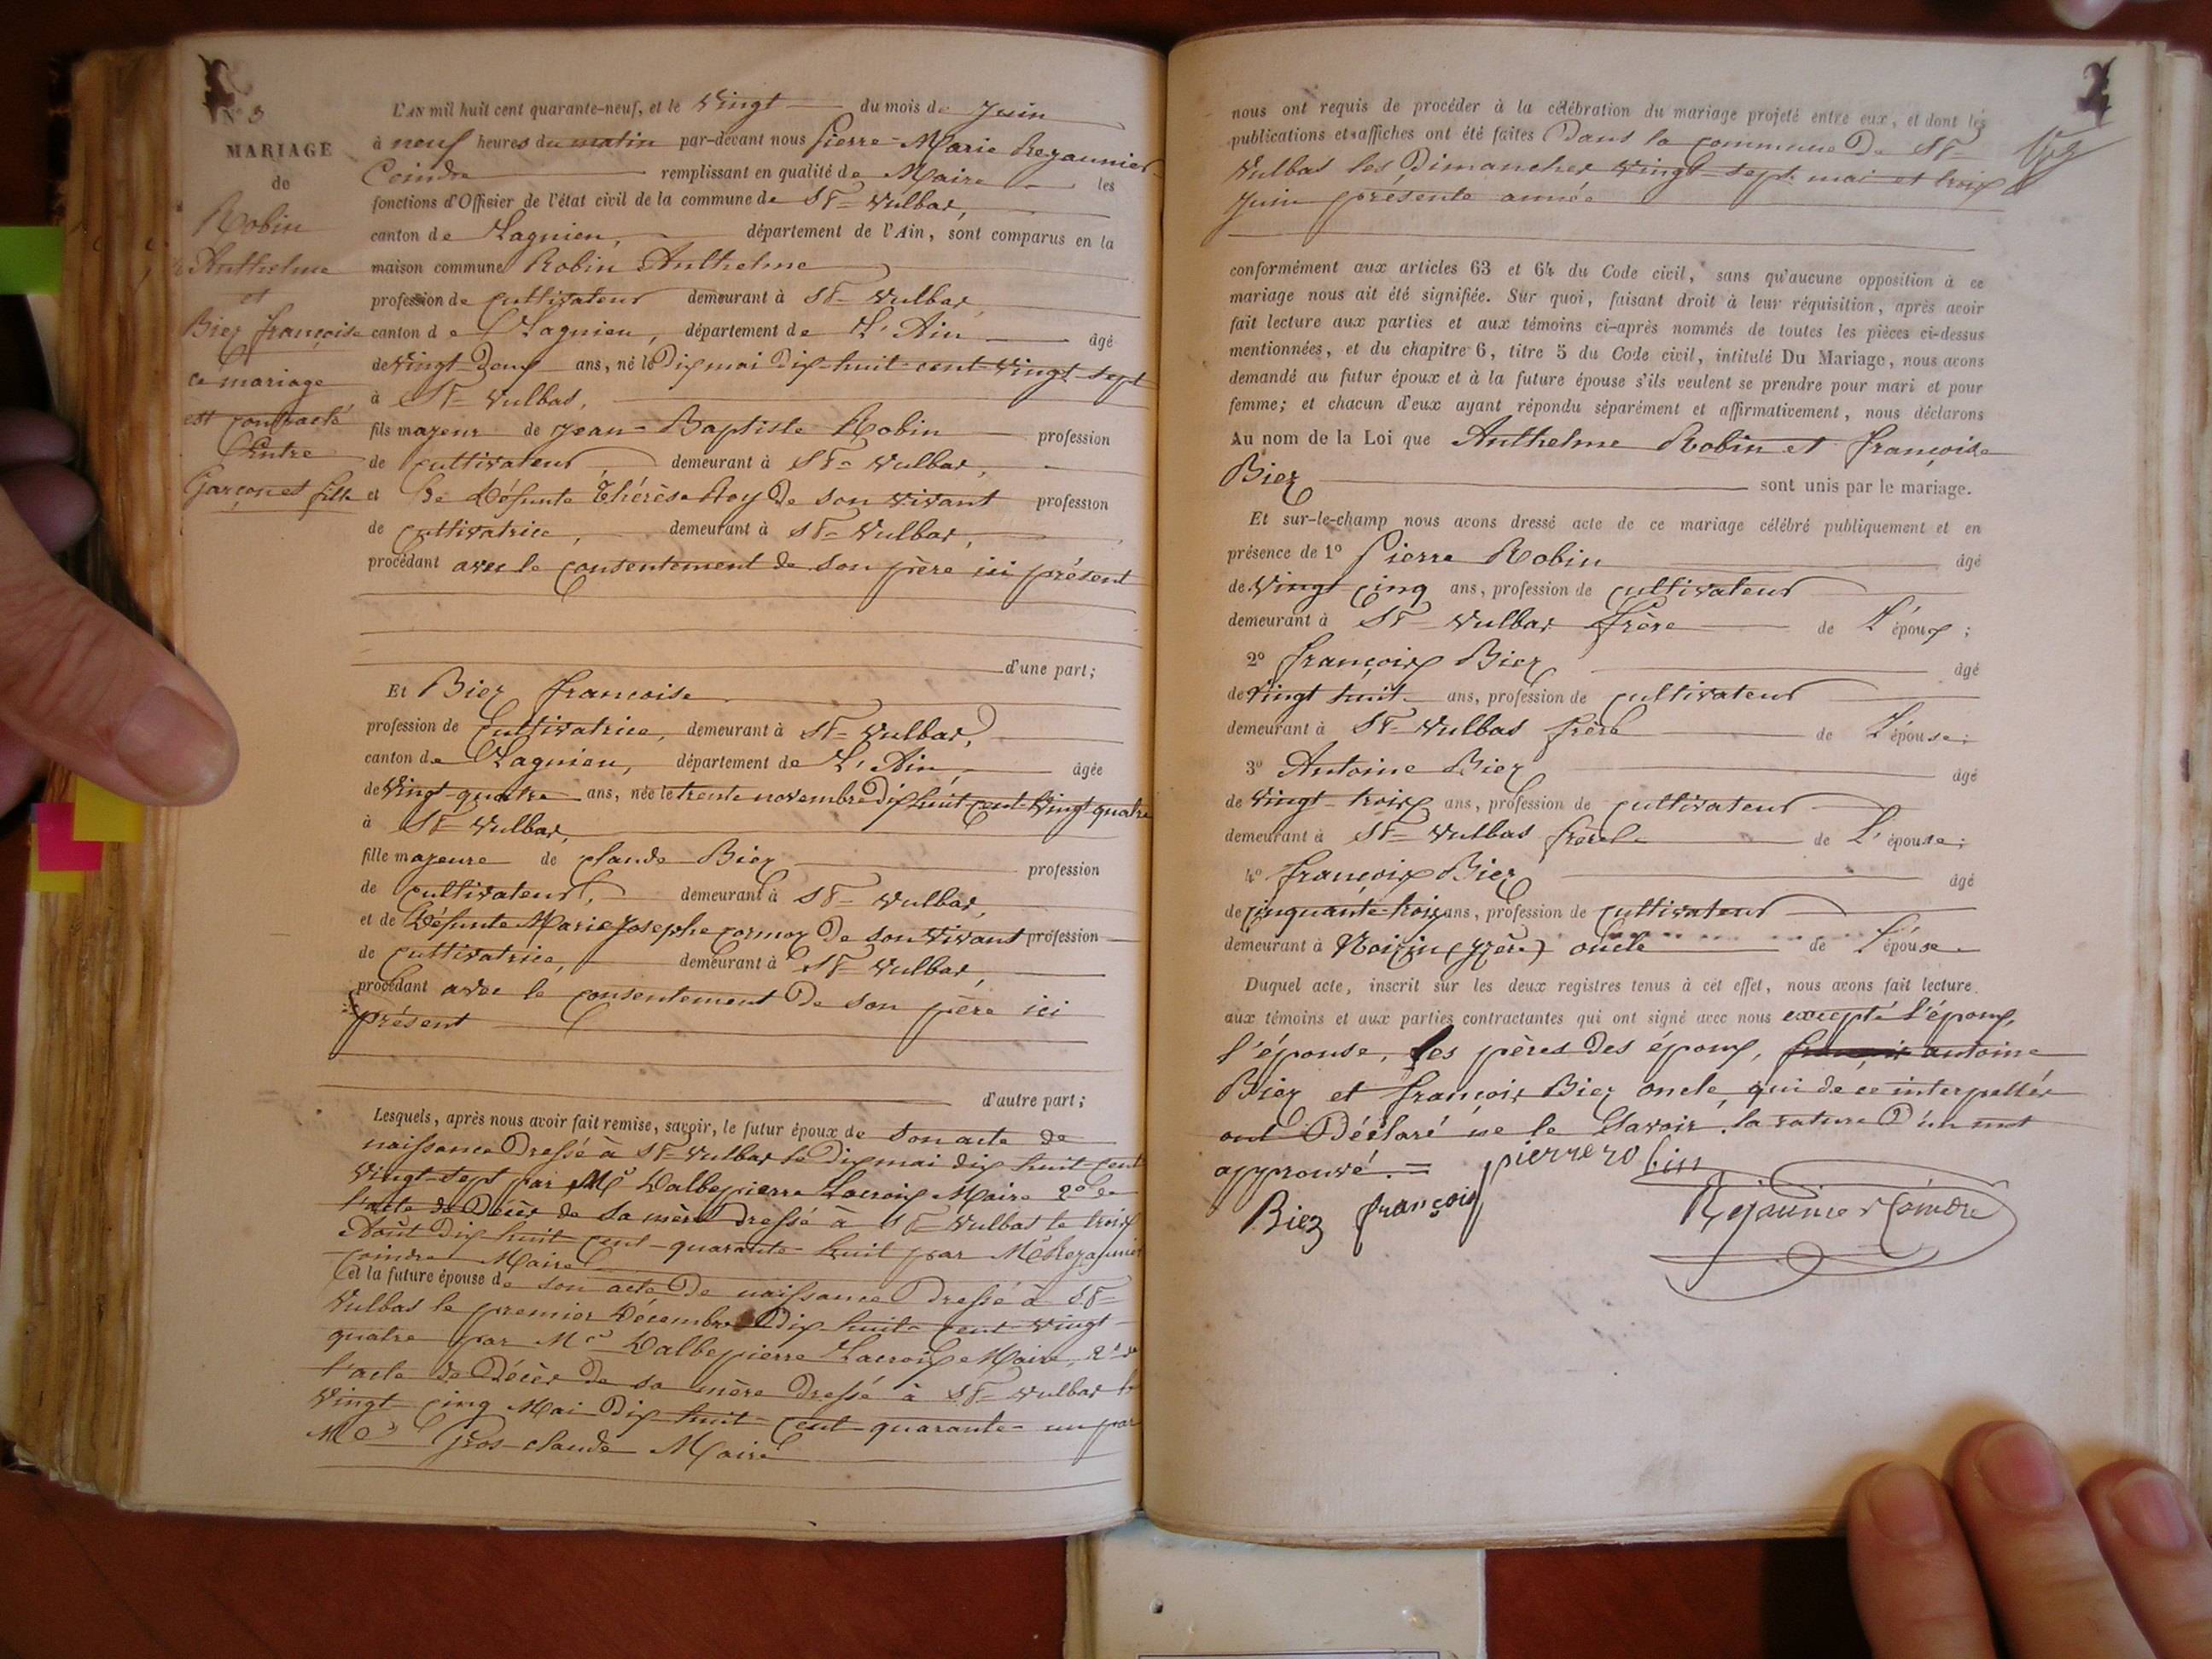 N° 3
MARIAGE
de
Robin
Anthelme
et
Biez françoise
ce mariage
est contracté
Entre
Garçon et fille
L'AN mil huit cent quarante-neuf, et le Vingt du mois de Juin
à neuf heures du matin par-devant nous Pierre-Marie Rejaunier
Coindre remplissant en qualité de Maire les
fonctions d'Officier de l'état civil de la commune de St- Vulbas,
canton de Lagnieu, département de l'Ain, sont comparus en la
maison commune Robin Anthelme
profession de cultivateur demeurant à St- Vulbas,
canton de Lagnieu, département de L'Ain âgé
de Vingt-Deux ans, né le Dix mai Dix-huit-cent-Vingt-sept
à St- Vulbas,
fils majeur de Jean-Baptiste Robin profession
de cultivateur, demeurant à St- Vulbas,
et de Défunte Thérèse Roy de son vivant profession
de cultivatrice, demeurant à St- Vulbas,
procédant avec le consentement de son père ici présent
d'une part;
Et Biez françoise
profession de Cultivatrice, demeurant à St- Vulbas,
canton de Lagnieu, département de L'Ain, âgée
de Vingt-quatre ans, née le trente novembre Dix huit-cent-Vingt-quatre
à St- Vulbas,
fille majeure de claude Biez profession
de cultivateur, demeurant à St- Vulbas,
et de Défunte Marie Josephe cormoz De son Vivant profession
de Cultivatrice, demeurant à St- Vulbas,
procédant avec le consentement De son père ici
présent
d'autre part;
Lesquels, après nous avoir fait remise, savoir, le futur époux de son acte de
naissance Dressé à St- Vulbas le Dix mai dix huit-cent
Vingt-sept par Mr Dalbepierre Lacroix Maire 2° de
l'acte de Décès de sa mère dressé à St- Vulbas le trois
Août Dix huit cent-quarante-huit par Mr Rejaunier
coindre Maire
et la future épouse de son acte De naissance Dressé à St-
Vulbas le premier Décembre Dix-huit-cent-Vingt-
quatre par Mr Dalbepierre Lacroix Maire, 2° de
l'acte de Décès de sa mère Dressé à St- Vulbas le
Vingt-cinq Mai Dix huit-cent-quarante-un par
Mr Gros-claude Maire
nous ont requis de procéder à la célébration du mariage projeté entre eux, et dont les
publications et affiches ont été faites Dans la commune De St-
Vulbas les Dimanches Vingt-sept mai et trois
Juin présente année
conformément aux articles 63 et 64 du Code civil, sans qu'aucune opposition à ce
mariage nous ait été signifiée. Sur quoi, faisant droit à leur réquisition, après avoir
fait lecture aux parties et aux témoins ci-après nommés de toutes les pièces ci-dessus
mentionnées, et du chapitre 6, titre 5 du Code civil, intitulé Du Mariage, nous avons
demandé au futur époux et à la future épouse s'ils veulent se prendre pour mari et pour
femme; et chacun d'eux ayant répondu séparément et affirmativement, nous déclarons
Au nom de la Loi que Anthelme Robin et françoise
Biez sont unis par le mariage.
Et sur-le-champ nous avons dressé acte de ce mariage célébré publiquement et en
présence de 1° Pierre Robin âgé
de Vingt cinq ans, profession de cultivateur
demeurant à St- Vulbas frère de L'époux;
2° françois Biez âgé
de Vingt huit ans, profession de cultivateur
demeurant à St- Vulbas frère de L'épouse;
3° Antoine Biez âgé
de Vingt-trois ans, profession de cultivateur
demeurant à St- Vulbas frère de L'épouse;
4° françois Biez âgé
de cinquante-trois ans, profession de cultivateur
demeurant à (Isère) oncle de L'épouse
Duquel acte, inscrit sur les deux registres tenus à cet effet, nous avons fait lecture
aux témoins et aux parties contractantes qui ont signé avec nous excepté l'époux,
l'épouse, Les pères des époux, françois antoine
Biez et françois Biez oncle qui de ce interpellés
ont Déclaré ne le Savoir. la rature D'un mot
approuvé. =
pierre robin
Biez françois
Rejaunier Coindre